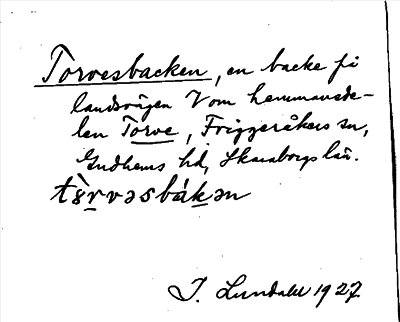 Torvesbacken, en backe på
landsvägen V om hemmansde-
len Torve, Friggeråkers sn,
Gudhems hd, Skaraborgs län.
tòrvəsbákən
I. Lundahl 1927.